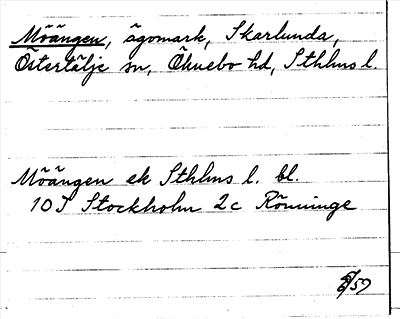 Möängen, ägomark, Skarlunda,
Östertälje sn, Öknebo hd, Sthlms l.
Möängen ek Sthlms l. bl.
10 I Stockholm 2c Rönninge
/59